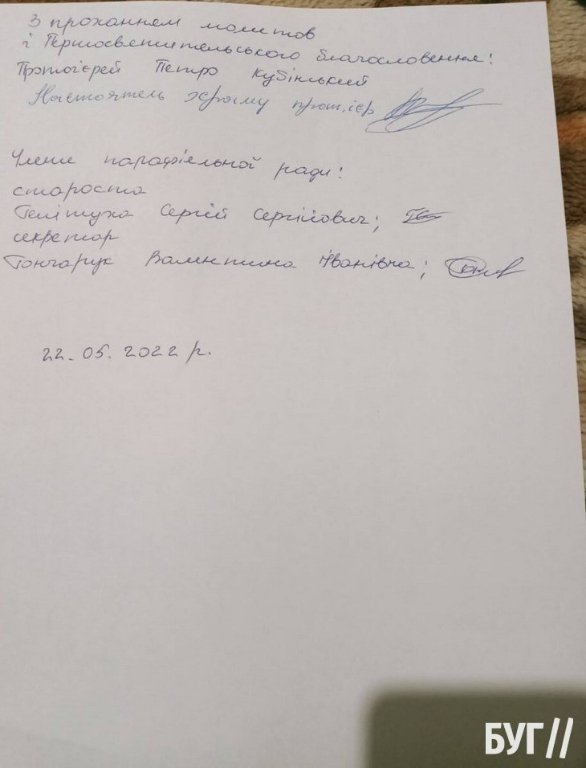 З проханням молитов
і Первосвятительського благословення:
Протоієрей Петро Кубінський
Настоятель храму прот.ієр
Члени парафіяльної ради:
староста
Сергій Сергійович;
секретар
Гончарук Валентина Іванівна;
22.05.2022 р.
БУГ//